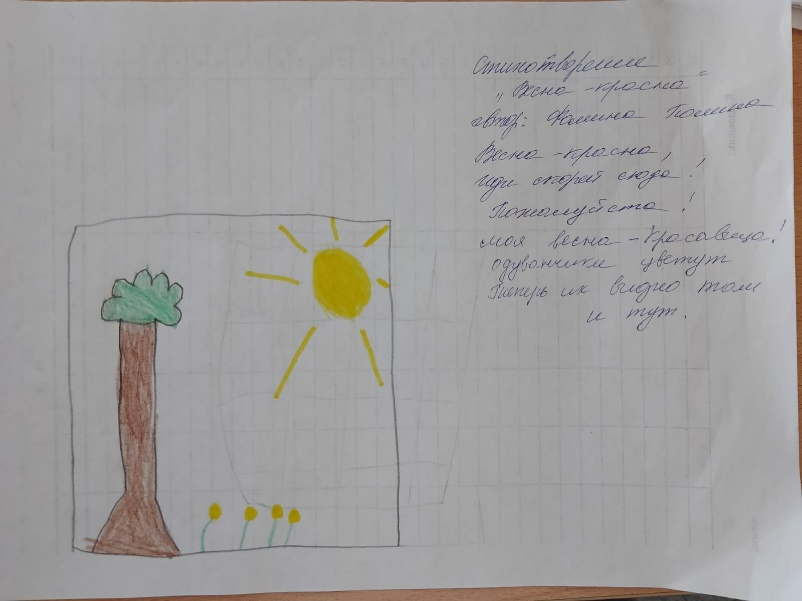 Стихотворение
„Весна-красна"
автор: Фомина Полина
Весна-красна,
иди скорей сюда!
Пожалуйста!
Моя весна-красавица!
Одуванчики цветут
Теперь их видно там
и тут.